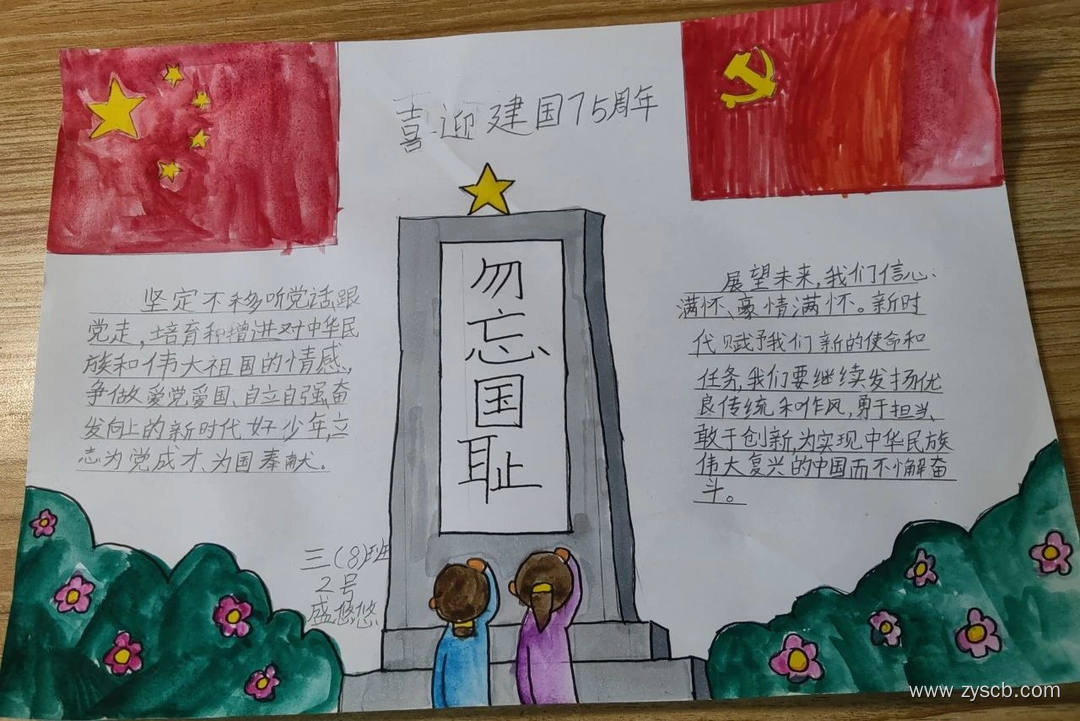 喜迎建国75周年
勿
忘
国
耻
坚定不移听党话,跟
党走,培育和增进对中华民
族和伟大祖国的情感,
争做爱党爱国、自立自强奋
发向上的新时代好少年,立
志为党成才、为国奉献.
展望未来,我们信心
满怀、豪情满怀。新时
代赋予我们新的使命和
任务,我们要继续发扬优
良传统和作风,勇于担当、
敢于创新,为实现中华民族
伟大复兴的中国而不懈奋
斗。
三(8)班
2号
盛悠悠
www.zyscb.com